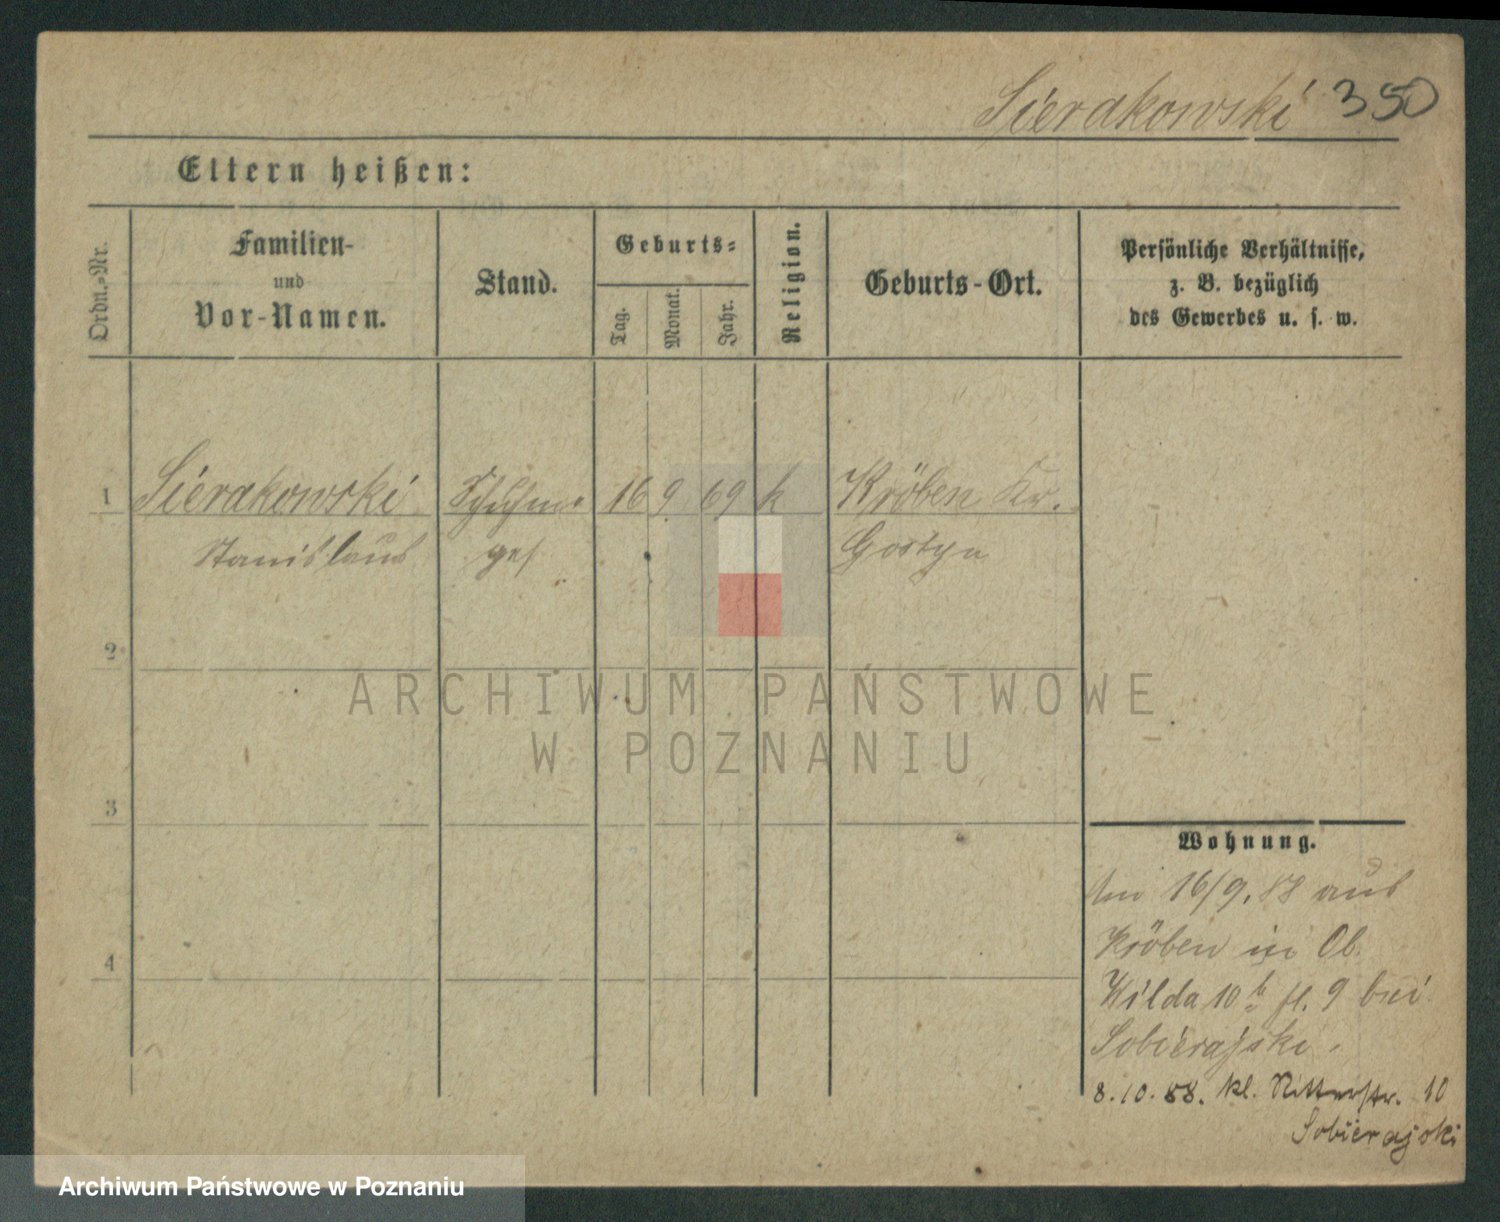 Sierakowski 350
Eltern heißen:
Ordn.-Nr.
Familien-
und
Vor-Namen.
Stand.
Geburts-
Tag.
Monat.
Jahr.
Religion.
Geburts-Ort.
Persönliche Verhältnisse,
z. B. bezüglich
des Gewerbes u. s. w.
1 Sierakowski 16 9 69 k Kröben Kr.
Stanislaus ges Gostyn
2
3
4
ARCHIWUM PAŃSTWOWE
W POZNANIU
Wohnung.
16/9. 88 aus
Kröben in Ob.
Wilda 10 b fl. 9 bei
Sobierajski.
8.10.88. kl. Ritterstr. 10
Sobierajski
Archiwum Państwowe w Poznaniu